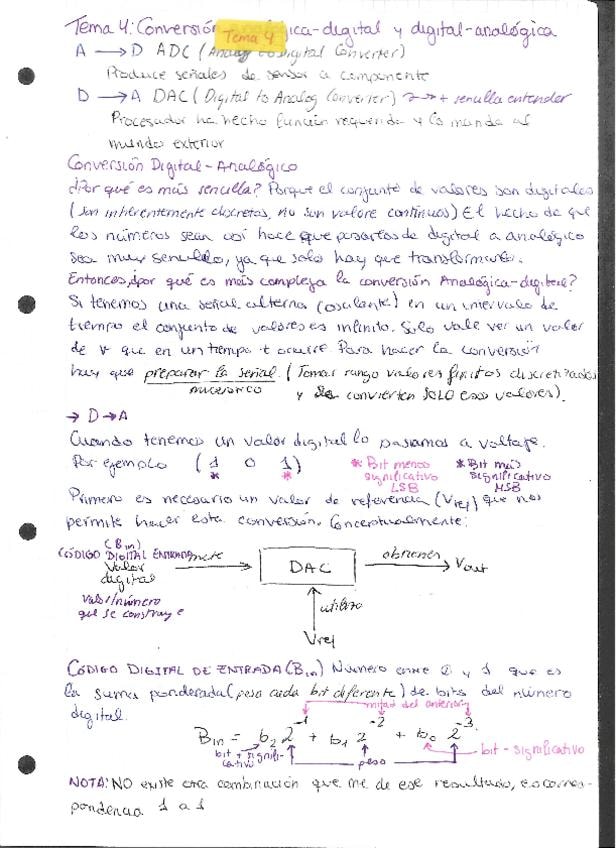 Tema 4: Conversión analógica-digital y digital-analógica
Tema 4
A → D ADC (Analog to Digital Converter)
Produce señales de sensor a componente
D → A DAC (Digital to Analog Converter) → + sencilla entender
Procesador ha hecho función requerida y lo manda al
mundo exterior
Conversión Digital-Analógico
¿Por qué es más sencilla? Porque el conjunto de valores son digitales
(son inherentemente discretas, no son valore continuos) El hecho de que
los números sean así hace que pasarlos de digital a analógico
sea muy sencillo, ya que solo hay que transformarlo.
Entonces, ¿por qué es más compleja la conversión Analógica-digital?
Si tenemos una señal alterna (oscilante) en un intervalo de
tiempo el conjunto de valores es infinito. Solo vale ver un valor
de v que en un tiempo t ocurre. Para hacer la conversión
hay que preparar la señal. (Tomar rango valores finitos discretizados
y se convierten SOLO esos valores).
→ D→A
Cuando tenemos un valor digital lo pasamos a voltaje.
Por ejemplo (1 0 1)
* *
* Bit menos significativo LSB
* Bit más significativo MSB
Primero es necesario un valor de referencia (Vref) que nos
permite hacer esta conversión. Conceptualmente:
(Bin)
CÓDIGO DIGITAL ENTRADA
valor digital
valor/número
que se construye
mete
DAC
obtienen
Vout
utilizo
Vref
CÓDIGO DIGITAL DE ENTRADA (Bin) Número entre 0 y 1 que es
la suma ponderada (peso cada bit diferente) de bits del número
digital.
mitad del anterior
Bin = b₂2⁻¹ + b₁2⁻² + b₀2⁻³
bit + significativo
peso
bit - significativo
NOTA: NO existe otra combinación que me de ese resultado, es corres-
pondencia 1 a 1